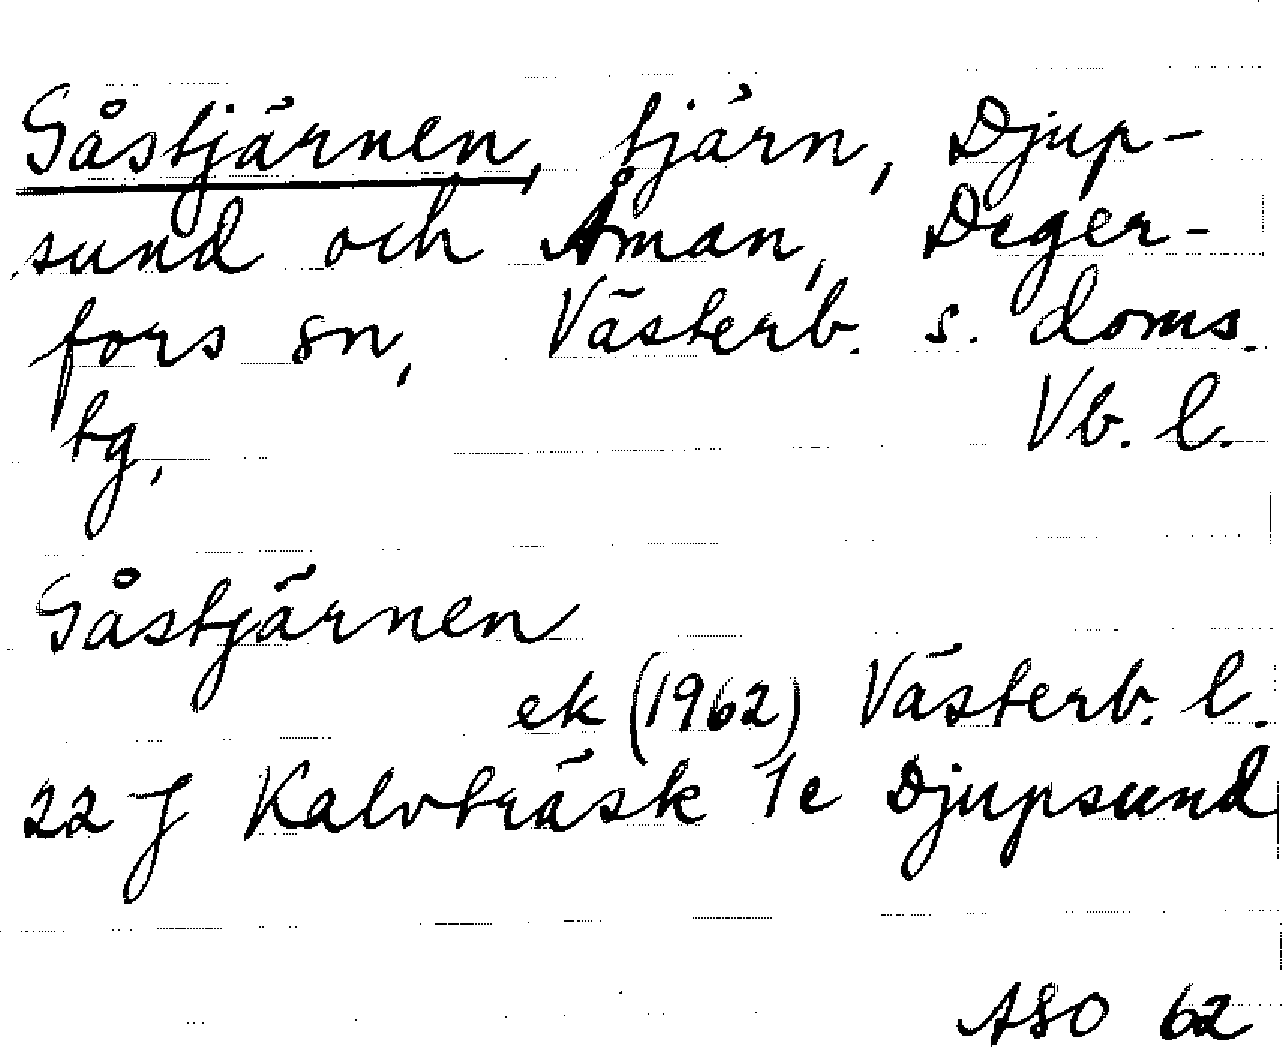 Gåstjärnen, tjärn, Djup-
sund och Åman, Deger-
fors sn, Västerb. s. doms.
tg, Vb. l.
Gåstjärnen
ek (1962) Västerb. l.
22 J Kalvträsk 1e Djupsund
ASO 62